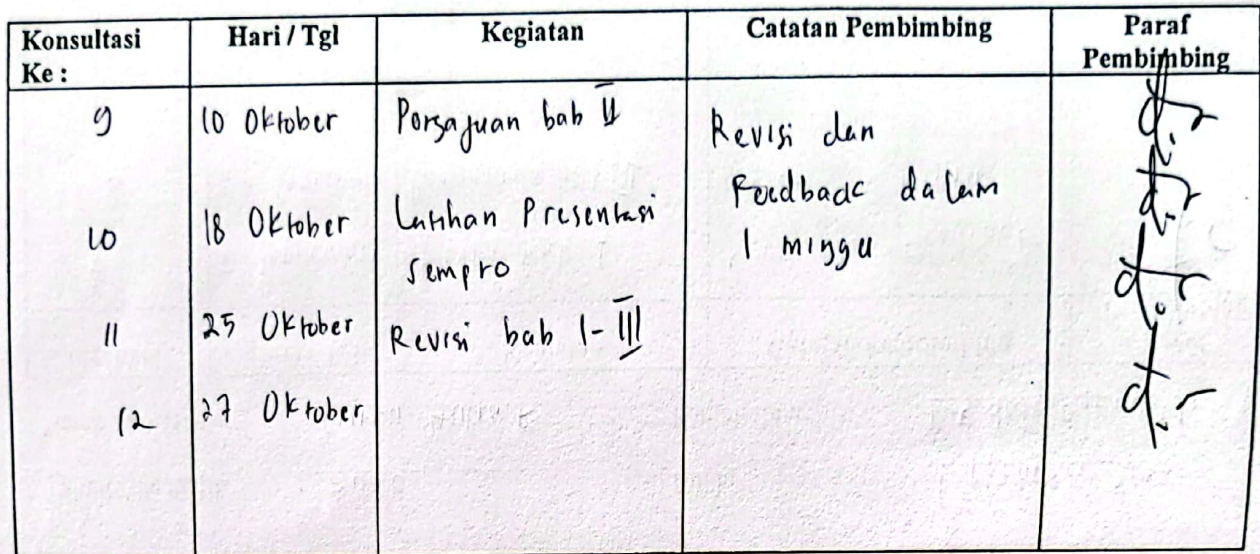 Konsultasi Ke :
Hari / Tgl
Kegiatan
Catatan Pembimbing
Paraf Pembimbing
9
10 Oktober
Porsajuan bab II
Revisi dan
Feedback dalam
1 minggu
10
18 Oktober
Latihan Presentasi
sempro
11
25 Oktober
Revisi bab I-III
12
27 Oktober